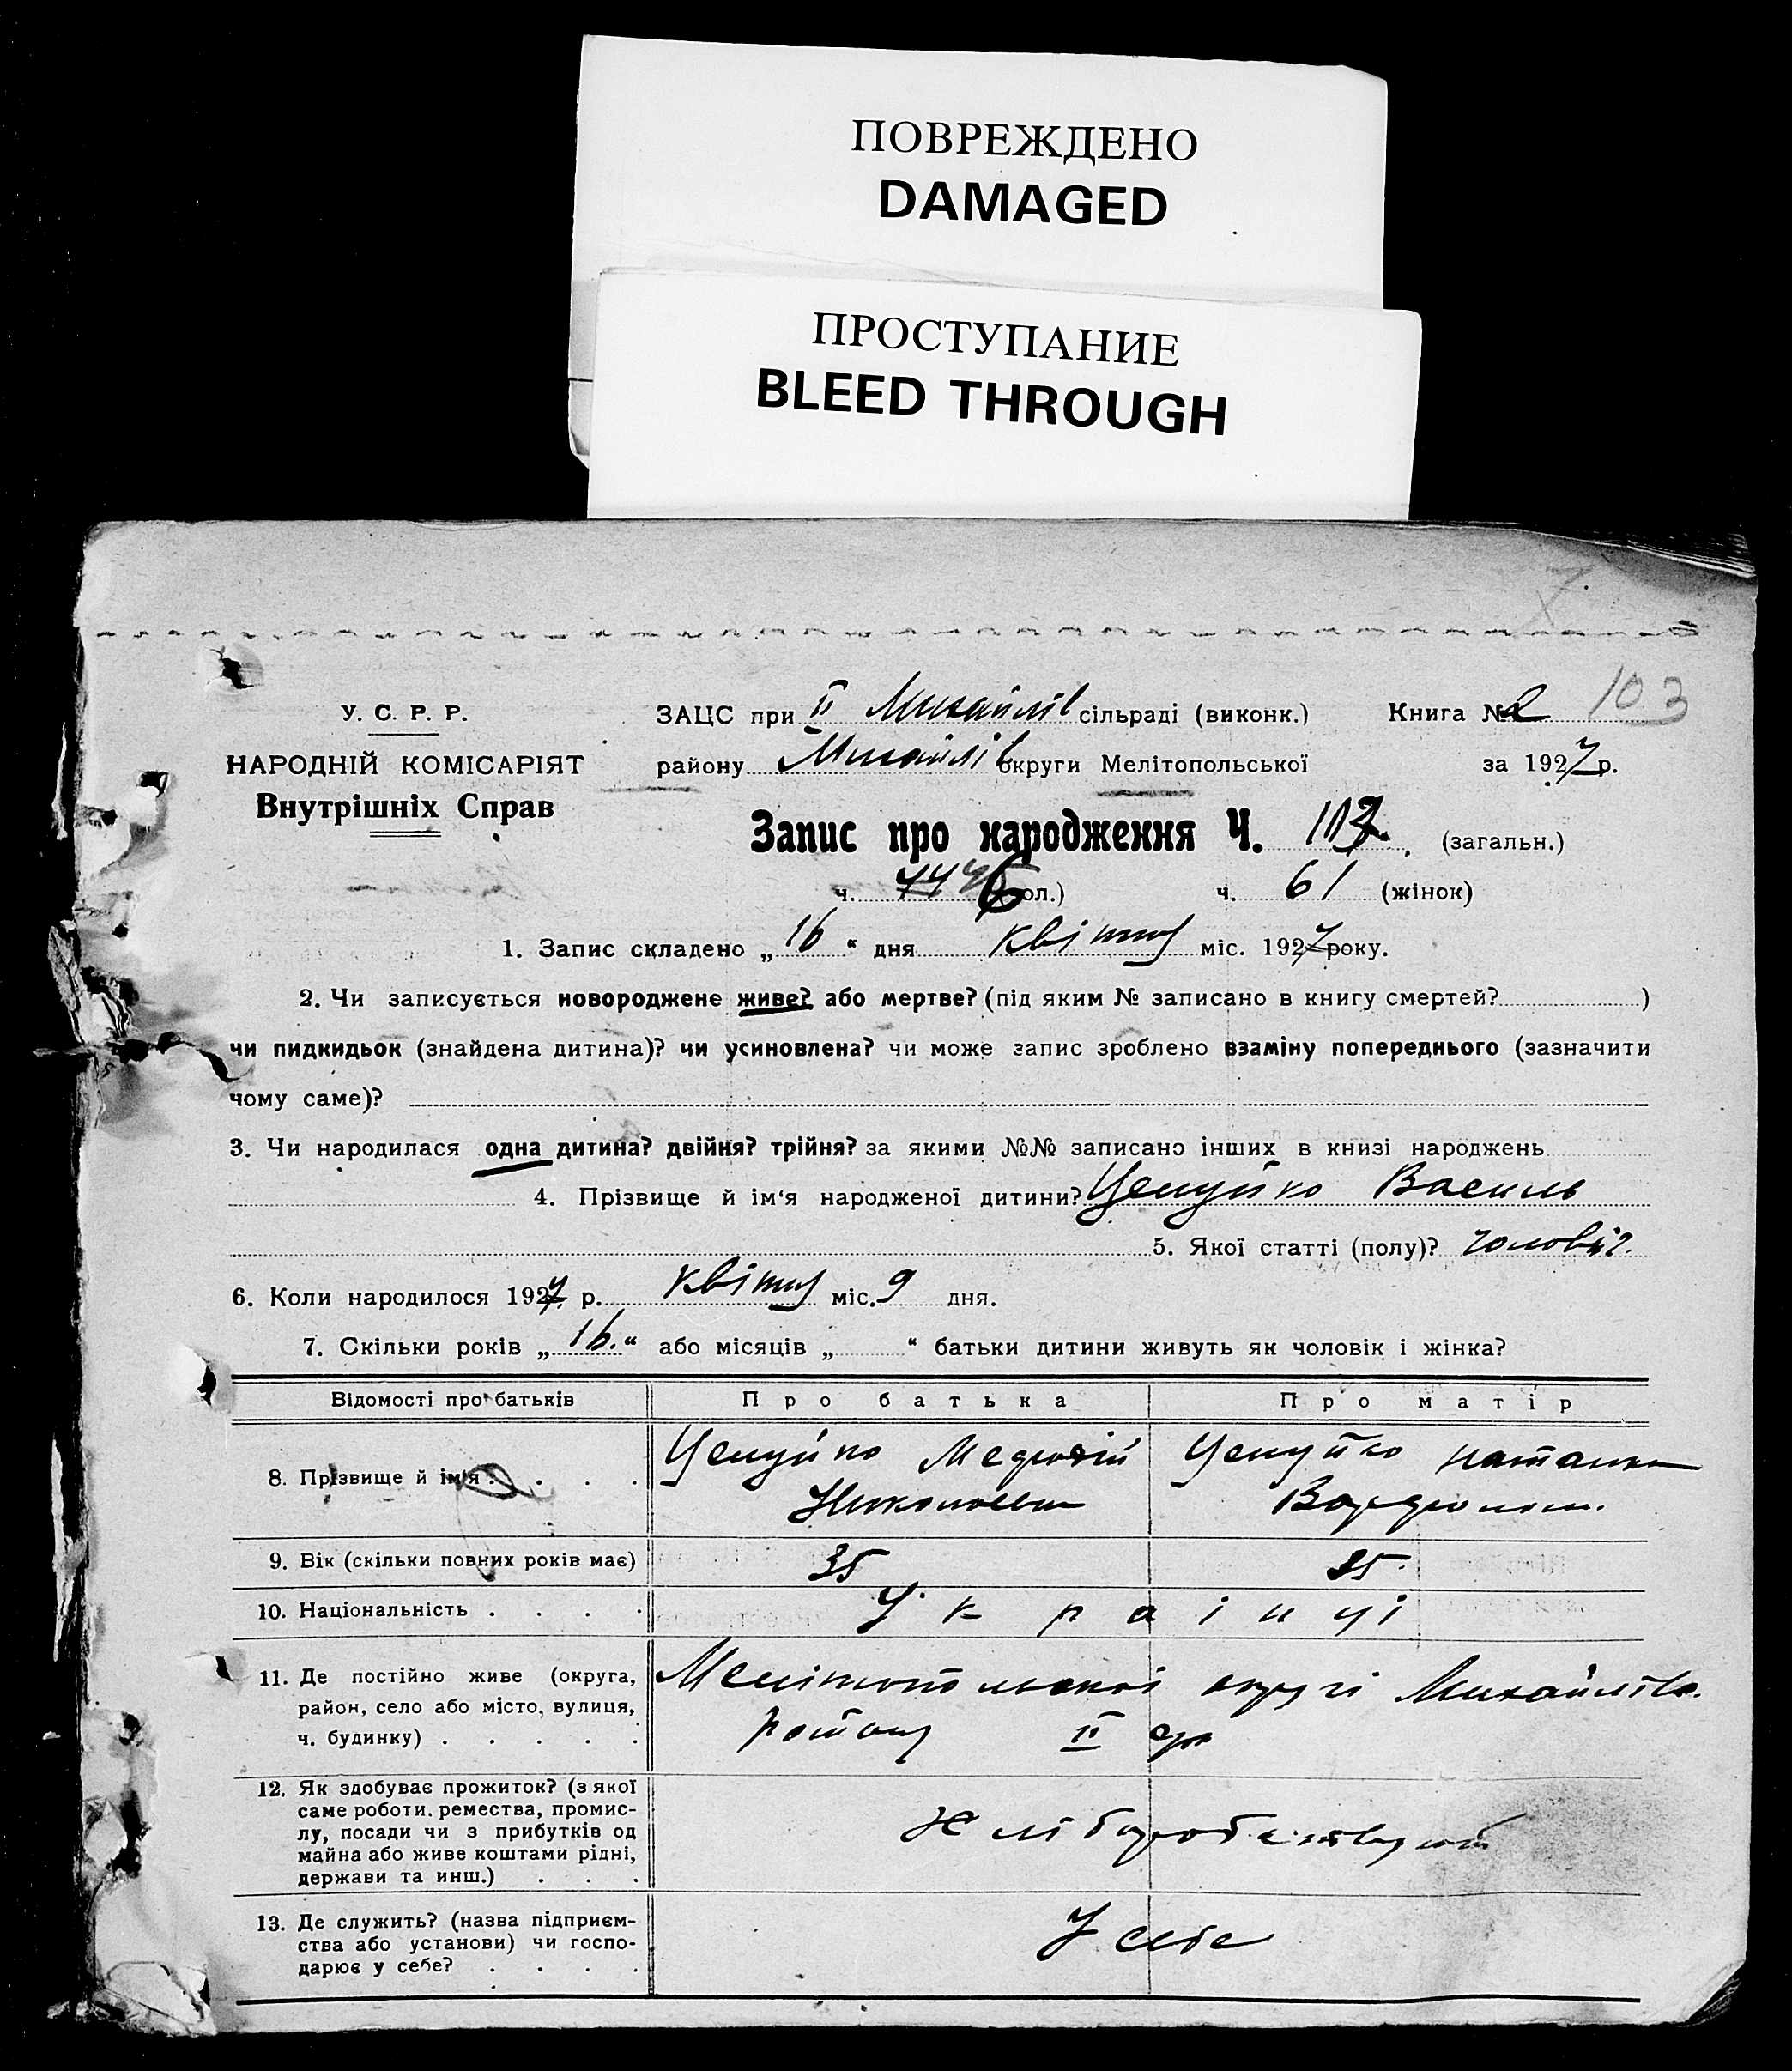 ПОВРЕЖДЕНО
DAMAGED
ПРОСТУПАНИЕ
BLEED THROUGH
103
У. С. Р. Р.
НАРОДНІЙ КОМІСАРІЯТ
Внутрішніх Справ
ЗАЦС при II Михайлів сільраді (виконк.) Книга № 2
району Михайлів округи Мелітопольської за 1927 р.
Запис про народження Ч. 107. (загальн.)
ч. 6 ол.) ч. 61 (жінок)
1. Запис складено „16“ дня квітня міс. 1927 року.
2. Чи записується новороджене живе? або мертве? (під яким № записано в книгу смертей? )
чи пидкидьок (знайдена дитина)? чи усиновлена? чи може запис зроблено взаміну попереднього (зазначити
чому саме)?
3. Чи народилася одна дитина? двійня? трійня? за якими №№ записано інших в книзі народжень
4. Прізвище й ім‘я народженої дитини? Целуйко Василь
5. Якої статті (полу)? чоловіч.
6. Коли народилося 1927 р. квітня міс. 9 дня.
7. Скільки років „16.“ або місяців „ “ батьки дитини живуть як чоловік і жінка?
Відомості про батьків Про батька Про матір
8. Прізвище й ім‘я . . . . Целуйко Мефодій Целуйко
Николаевич
9. Вік (скільки повних років має) 35
10. Національність . . . . Українці
11. Де постійно живе (округа, район, село або місто, вулиця, ч. будинку) . . . . . Мелітопольської округі Михайлів.
району II
12. Як здобуває прожиток? (з якої саме роботи, ремества, промислу, посади чи з прибутків од майна або живе коштами рідні, держави та инш.) . . .
13. Де служить? (назва підприємства або установи) чи господарює у себе? . . . . У себе